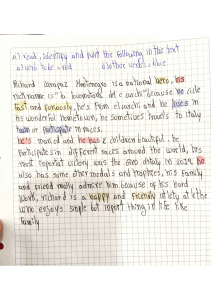 a) read, identify and paint the following in the text
a) verb to be = red b) other verbs = blue
Richard carapaz Montenegro is a national hero, his
nickname is "a locomotora del carchi" because he ride
fast and furiously, he's from el carchi and he lives in
his wonderful hometown, he sometimes travels to Italy
train or participate in races.
he's married and he has 2 children beautiful. he
participates in different races around the world, his
most important victory was the Giro ditaly in 2019. he
also has some other medals and trophies, his family
and friend really admire him because of his hard
work, richard is a happy and friendly athlety athlete
who enjoys simple but important thing in life like
family